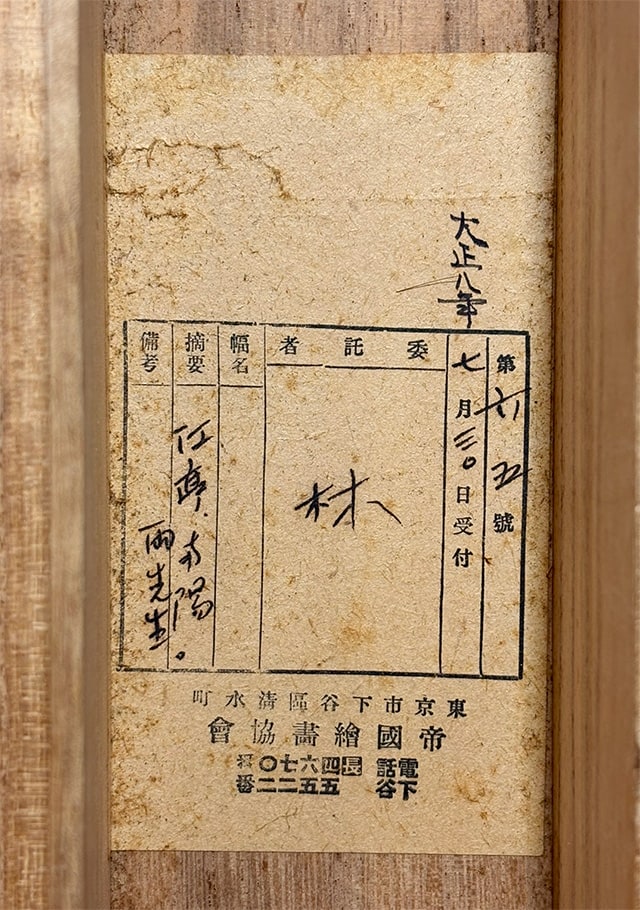 大正八年
第六五號
七月三〇日受付
委託者
林
幅名
摘要
南陽
備考
両先生。
東京市下谷區清水町
帝國繪畫協會
電話下谷
長四六七〇番
五五二二番